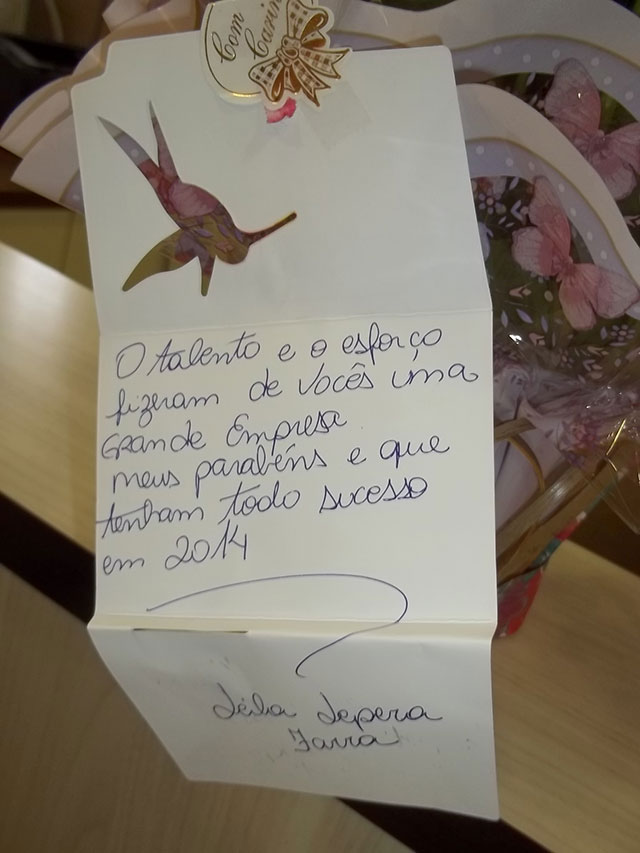 Com
Carin
O talento e o esforço
fizeram de vocês uma
Grande Empresa
meus parabéns e que
tenham todo sucesso
em 2014